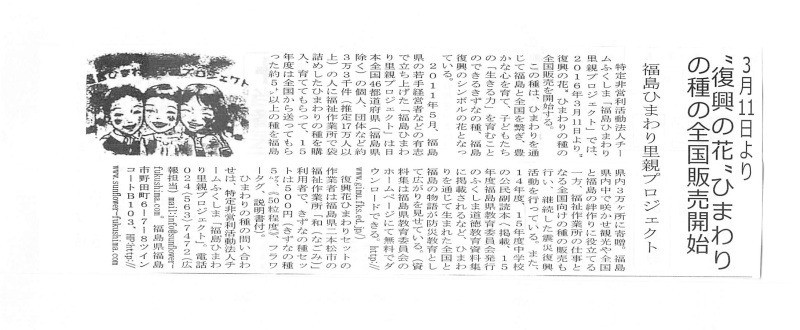 3月11日より
“復興の花”ひまわり
の種の全国販売開始
福島ひまわり里親プロジェクト
特定非営利活動法人チー
ムふくしま「福島ひまわり
里親プロジェクト」では、
2016年3月11日より、
復興の花、ひまわりの種の
全国販売を開始する。
この種は、ひまわりを通
じて福島と全国を繋ぎ、豊
かな心を育て、子どもたち
の「生きる力」を育むこと
のできるきずなの種、福島
復興のシンボルの花となっ
ている。
2011年5月、福島
県の若手経営者などの有志
で立ち上げた「福島ひまわ
り里親プロジェクト」は日
本全国46都道府県(福島県
除く)の個人、団体など約
3万3千(推定17万人以
上)の人に福祉作業所で袋
詰めしたひまわりの種を購
入、育ててもらって、15
年度は全国から送ってもら
った約5㌧以上の種を福島
県内3万ヶ所に寄贈、福島
県内中で咲かせ観光や全国
と福島の絆作りに役立てる
一方、福祉作業所の仕事と
なる全国向けの種の販売も
行い、継続した震災復興
活動を行っている。また、
14年度、15年度中学校
の公民副読本へ掲載、15
年度福島県教育委員会発行
のふくしま道徳教育資料集
に掲載されるなど、ひまわ
りを通じて生まれた全国と
福島の物語が防災教育とし
て広がりを見せている。(資
料集は福島県教育委員会の
ホームページにて無料でダ
ウンロードできるhttp://
www.gimu.fks.ed.jp/)
復興花ひまわりセットの
作業者は福島県二本松市の
福祉作業所「和(なごみ)」
利用者で、きずなの種セッ
トは500円(きずなの種
5㌘《50粒程度》、フラワ
ータグ、説明書付)。
ひまわりの種の問い合わ
せは、特定非営利活動法人チ
ームふくしま「福島ひまわ
り里親プロジェクト」、電話
024(563)7472(広
報担当)mail:info@sunflower-
fukushima.com 福島県福島
市野田町6-7-8ツイン
コートB103、HP http://
www.sunflower-fukushima.com
ひまわり里親プロジェクト